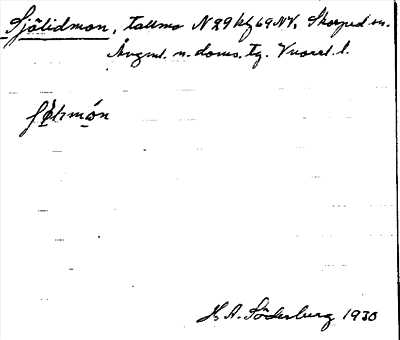 Sjölidmon, tallmo N 29 kf 69 NV, Skorped sn.
Ångml. n. doms. tg. Vnorrl. l.
H. A. Söderburg 1930